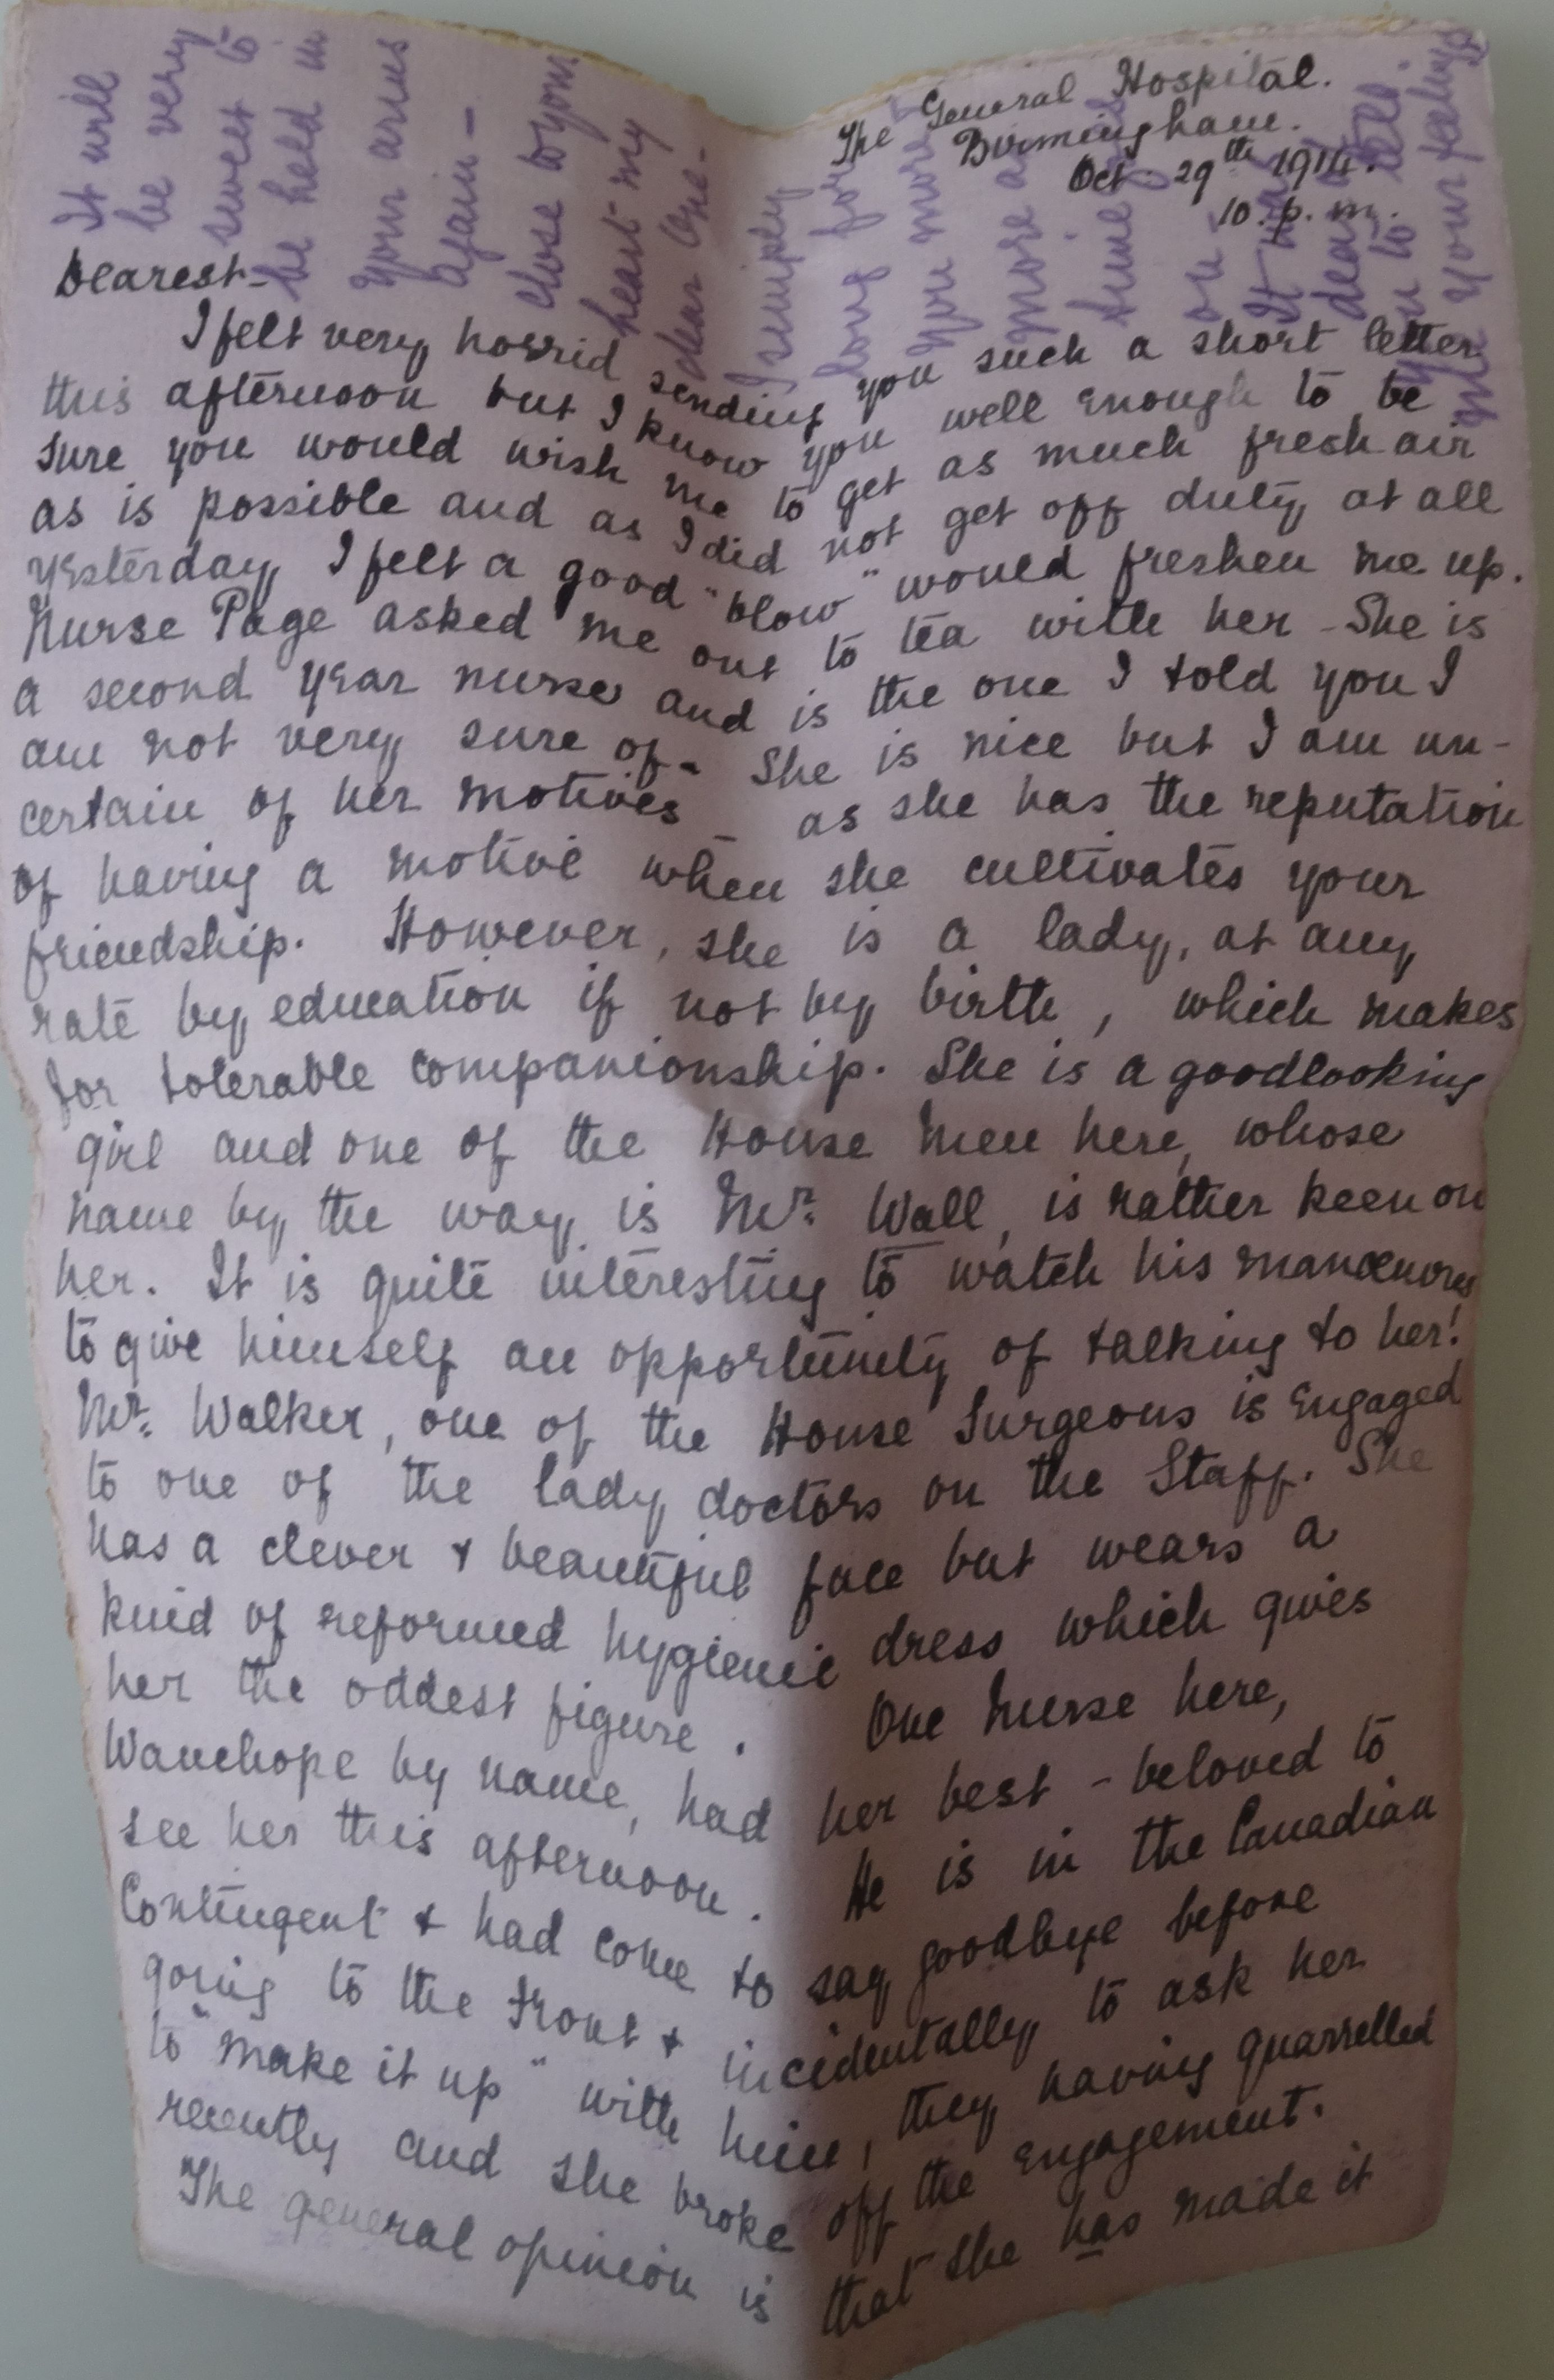 The General Hospital.
Birmingham.
Oct. 29th 1914.
10. p.m.
Dearest -
I felt very horrid sending you such a short letter
this afternoon but I know you well enough to be
sure you would wish me to get as much fresh air
as is possible and as I did not get off duty at all
yesterday I felt a good "blow" would freshen me up.
Nurse Page asked me out to tea with her - She is
a second year nurse and is the one I told you I
am not very sure of - She is nice but I am un-
certain of her motives - as she has the reputation
of having a motive when she cultivates your
friendship. However, she is a lady, at any
rate by education if not by birth, which makes
for tolerable companionship. She is a goodlooking
girl and one of the House Men here, whose
name by the way is Mr. Wall, is rather keen on
her. It is quite interesting to watch his manœuvres
to give himself an opportunity of talking to her!
Mr. Walker, one of the House Surgeons is engaged
to one of the lady doctors on the Staff. She
has a clever & beautiful face but wears a
kind of reformed hygienic dress which gives
her the oddest figure. One Nurse here,
Wauchope by name, had her best-beloved to
see her this afternoon. He is in the Canadian
Contingent & had come to say goodbye before
going to the front & incidentally to ask her
to "make it up" with him, they having quarrelled
recently and she broke off the engagement.
The general opinion is that she has made it
It will
be very
sweet to
be held in
your arms
again -
close to your
heart my
dear one -
I simply
long for
you more &
more as
time goes
on.
It was
dear of
you to tell
me your